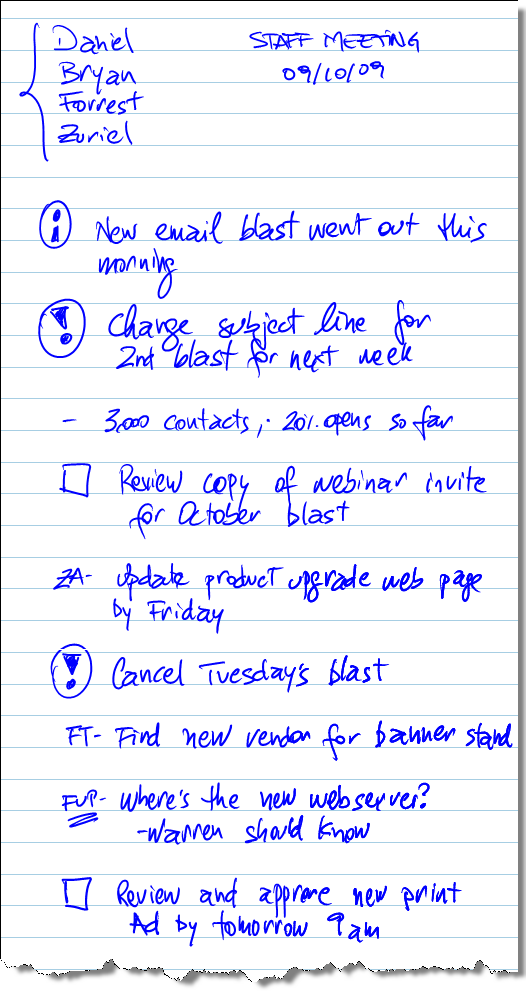 Daniel
Bryan
Forrest
Zuriel
STAFF MEETING
09/10/09
i New email blast went out this
morning
! Change subject line for
2nd blast for next week
- 3,000 contacts, 20% opens so far
Review copy of webinar invite
for October blast
ZA- update product upgrade web page
by Friday
! Cancel Tuesday's blast
FT- Find new vendor for banner stand
FUP- Where's the new webserver?
- Warren should know
Review and approve new print
Ad by tomorrow 9am